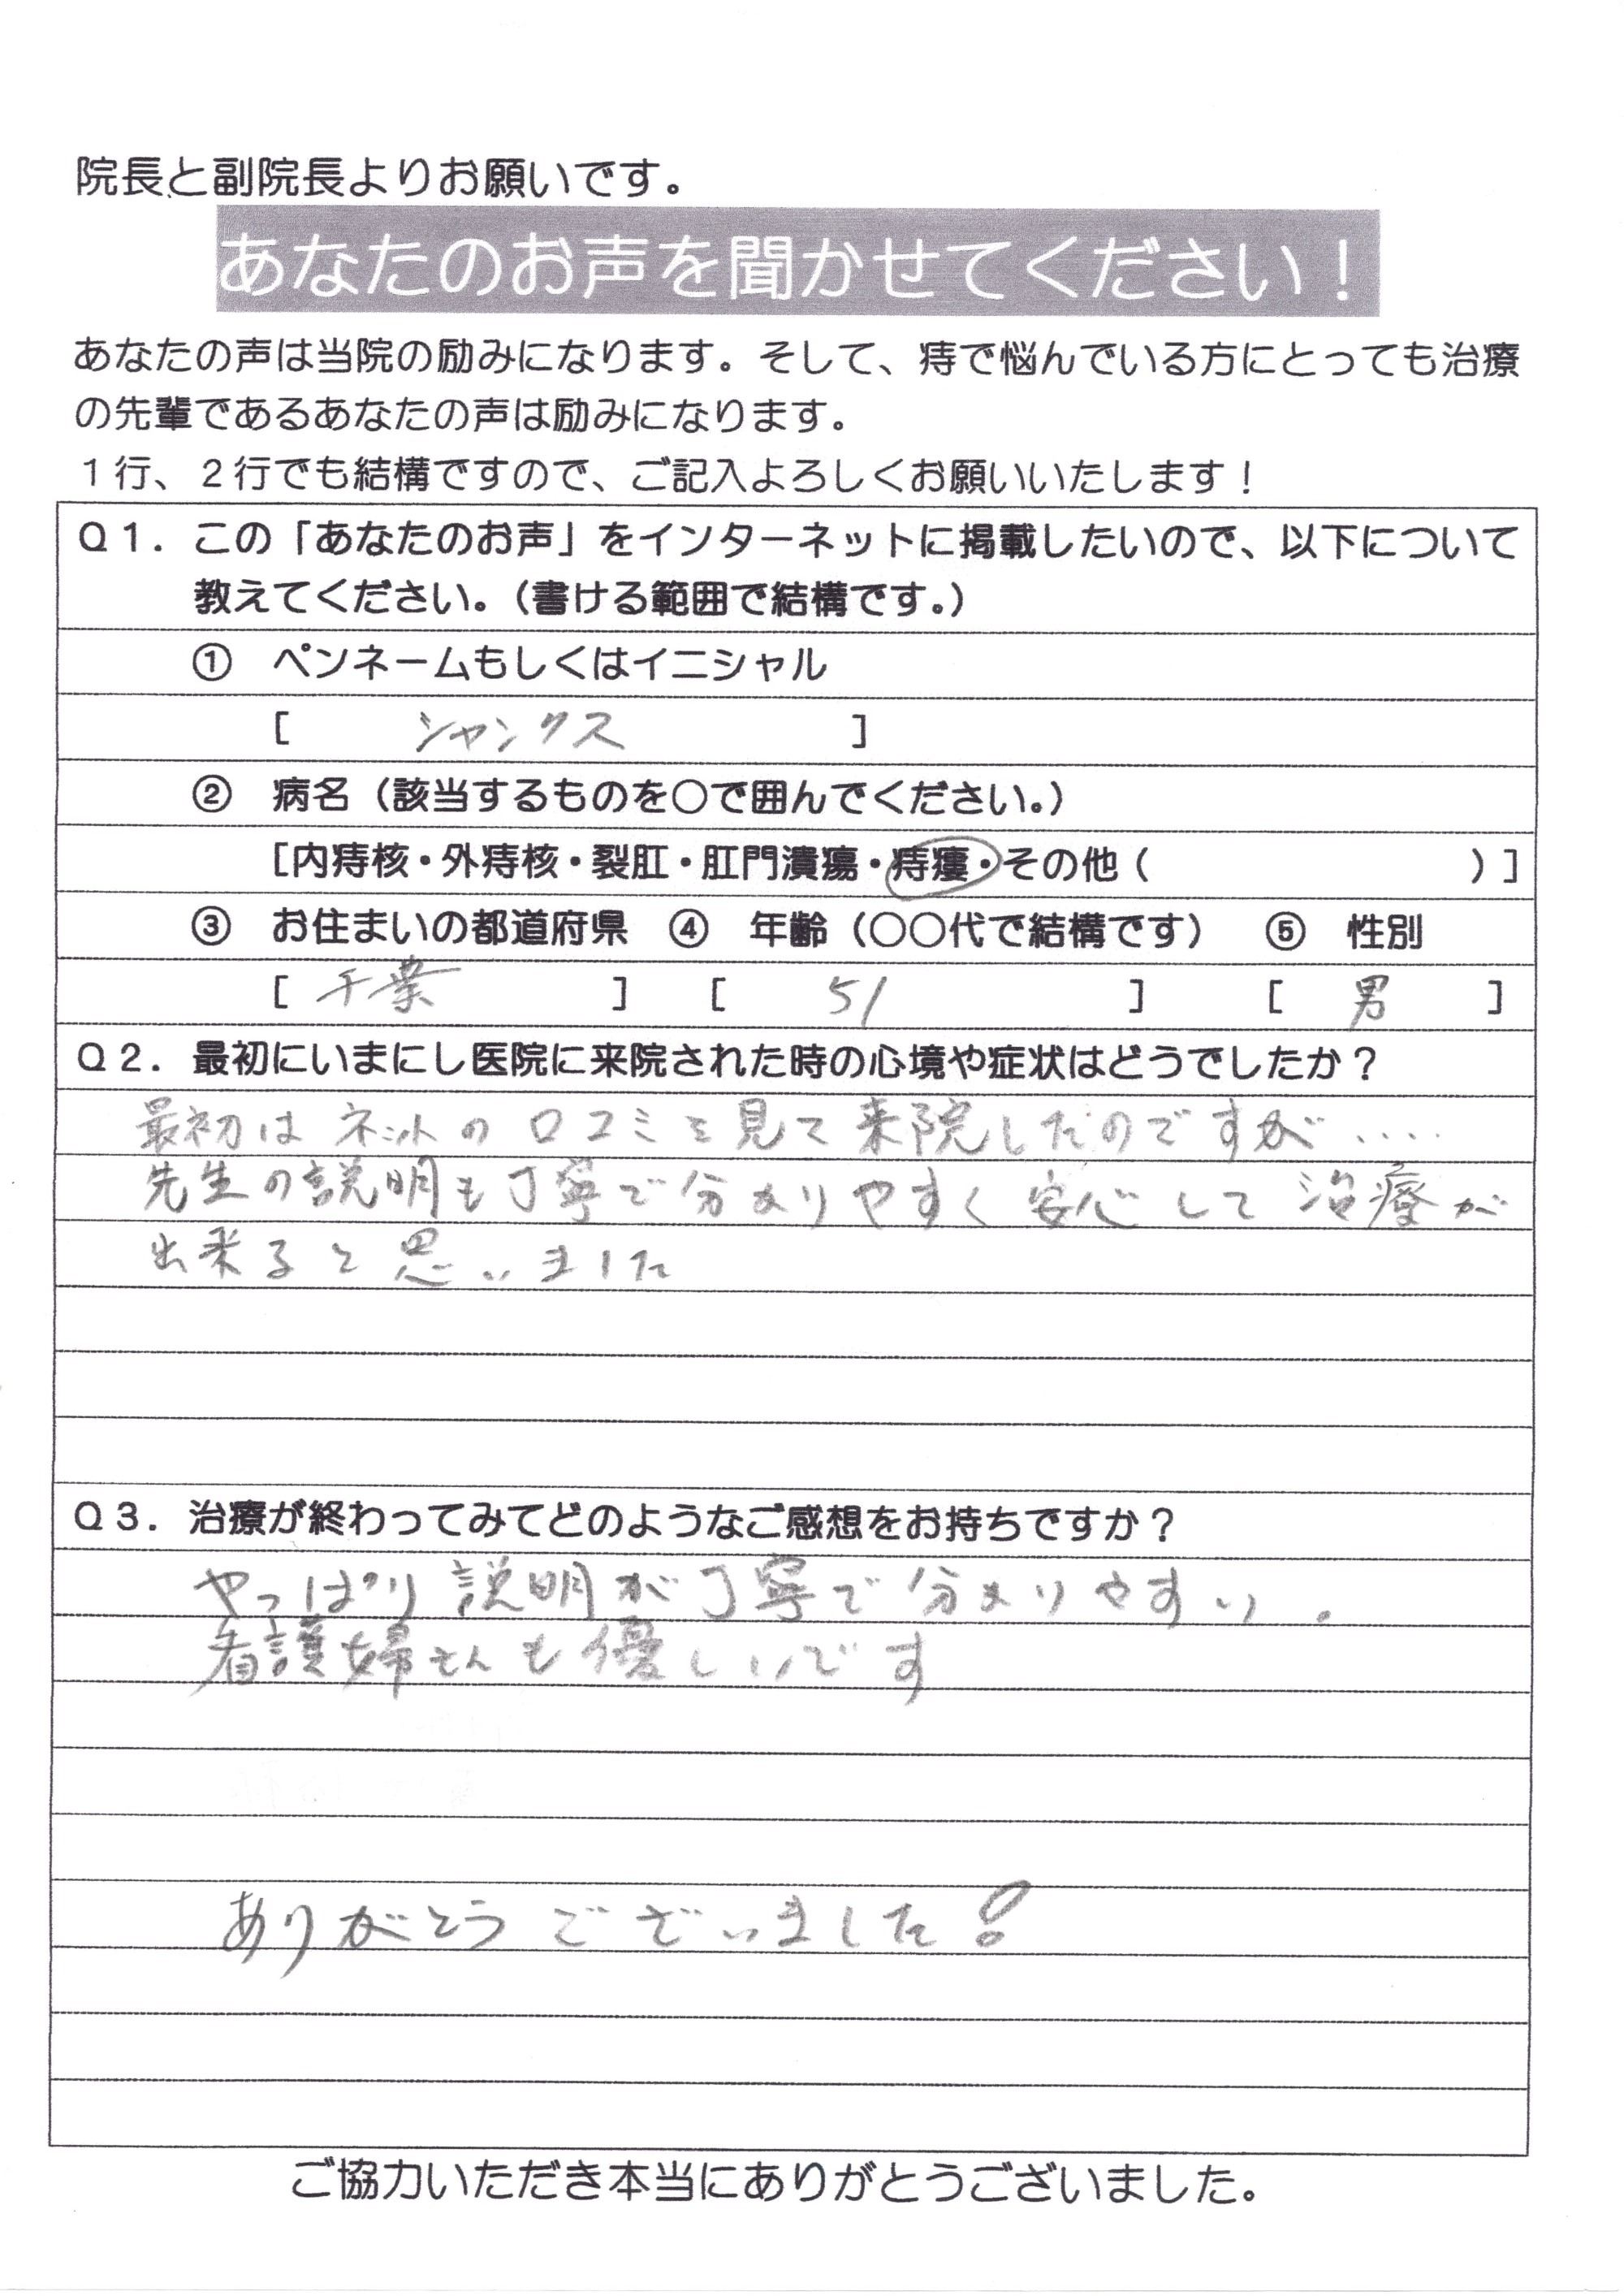 院長と副院長よりお願いです。
あなたのお声を聞かせてください！
あなたの声は当院の励みになります。そして、痔で悩んでいる方にとっても治療
の先輩であるあなたの声は励みになります。
１行、２行でも結構ですので、ご記入よろしくお願いいたします！
Ｑ１．この「あなたのお声」をインターネットに掲載したいので、以下について
教えてください。（書ける範囲で結構です。）
① ペンネームもしくはイニシャル
[ シャンクス ]
② 病名（該当するものを○で囲んでください。）
[内痔核・外痔核・裂肛・肛門潰瘍・痔瘻・その他（ ）]
③ お住まいの都道府県 ④ 年齢（○○代で結構です） ⑤ 性別
[ 千葉 ] [ 51 ] [ 男 ]
Ｑ２．最初にいまにし医院に来院された時の心境や症状はどうでしたか？
最初はネットの口コミを見て来院したのですが....
先生の説明も丁寧で分かりやすく安心して治療が
出来ると思いました
Ｑ３．治療が終わってみてどのようなご感想をお持ちですか？
やっぱり説明が丁寧で分かりやすい。
看護婦さんも優しいです
ありがとうございました！
ご協力いただき本当にありがとうございました。